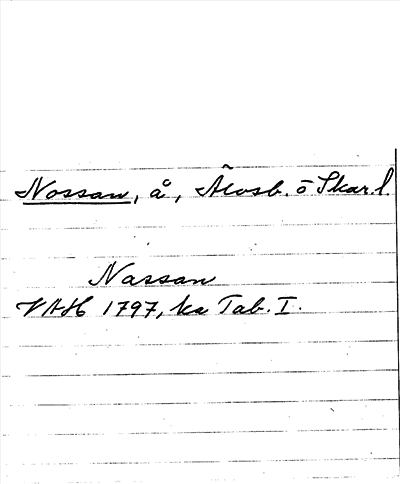 Nossan, å, Älvsb. o Skar.l.
Nassan
VAH 1797, ka Tab. I.